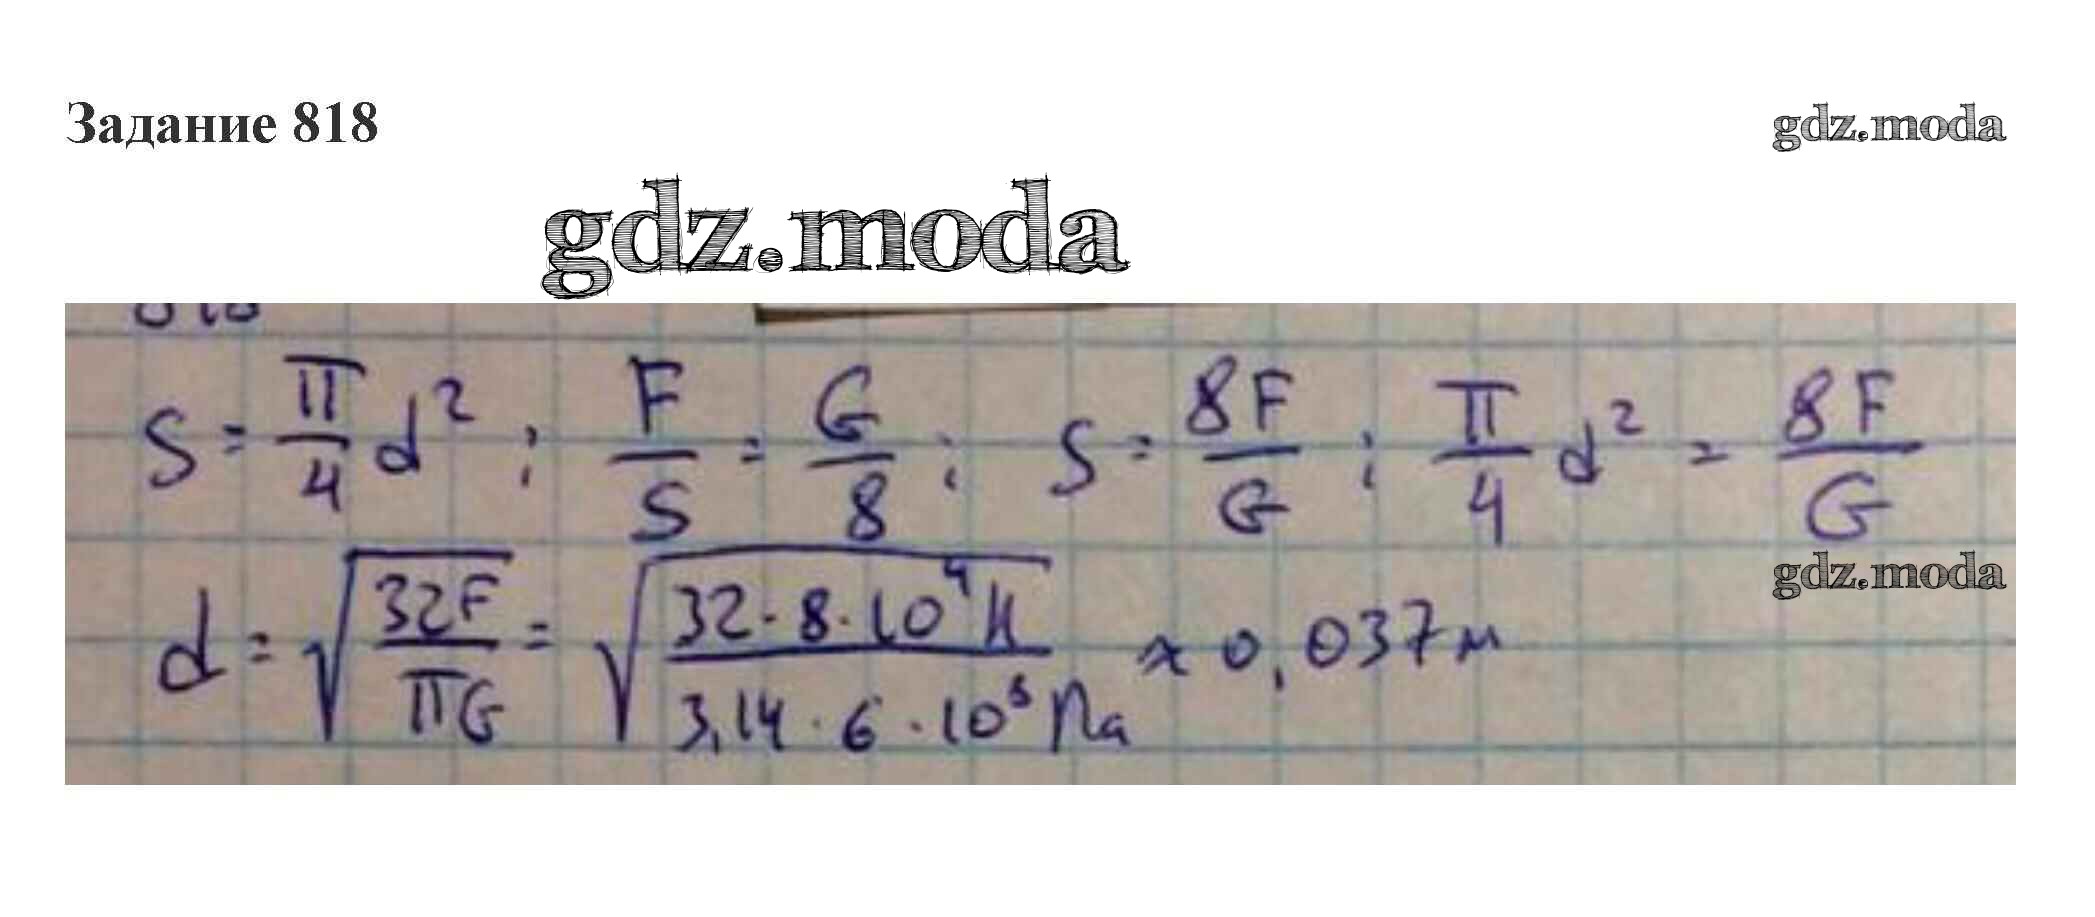 Задание 818
gdz.moda
gdz.moda
S = π/4 d² ; F/S = G/8 ; S = 8F/G ; π/4 d² = 8F/G
gdz.moda
d = √(32F/πG) = √(32·8·10⁴ Н/3,14·6·10⁸ Па) ≈ 0,037 м